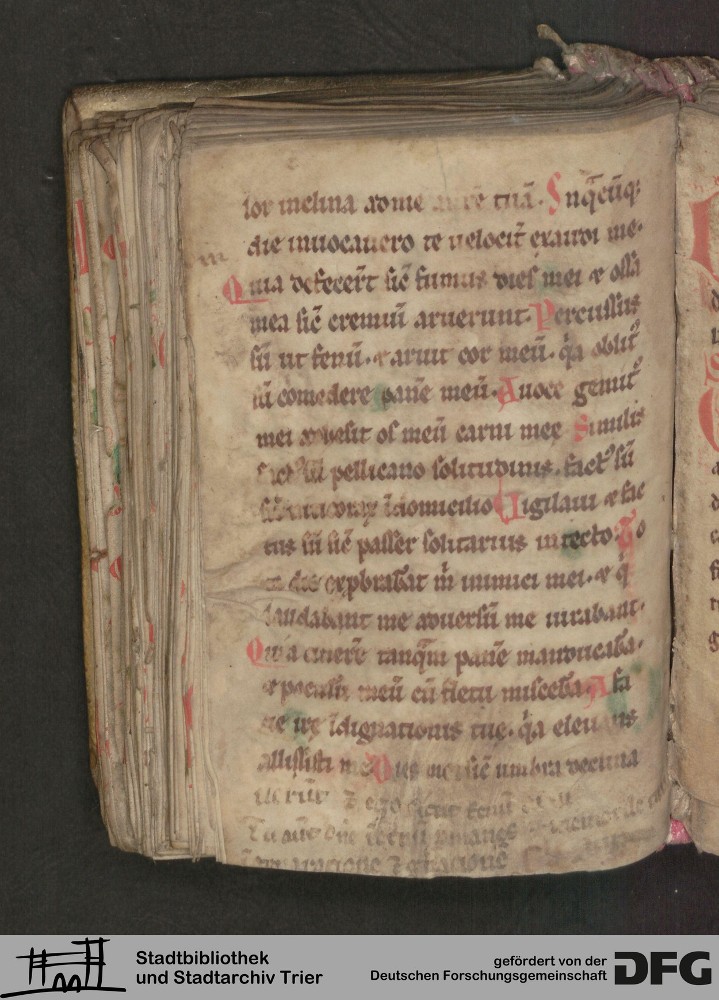 lor inclina adme aurē tuā. Inq̄cūq;
die inuocauero te uelocit̄ exaudi me.
Quia defecer̄t sic̄ fumus dies mei ⁊ ossa
mea sic̄ cremiū aruerunt. Percussus
sū ut fenū. ⁊ aruit cor meū. q̄a oblit⁹
sū comedere panē meū. Auoce gemit⁹
mei adhesit os meū carni mee Similis
fact⁹ sū pellicano solitudinis. fact⁹ sū
domicilio Vigilaui ⁊ fac
tus sū sic̄ passer solitarius intecto. To
ta die exp̄brabāt m̄ inimici mei. ⁊ q̄
laudabant me aduersū me iurabant.
Quia cinerē tanq̄m panē manducabā.
⁊ poculū meū cū fletu miscebā. A fa
cie ire īdignationis tue. q̄a eleuans
allisisti me Dies mei sic̄ umbra declina
uerūt ⁊ ego sicut fenū
Tu autē dn̄e īet̄nū p̄manes
⁊ ḡn̄acionē
Stadtbibliothek
und Stadtarchiv Trier
gefördert von der
Deutschen Forschungsgemeinschaft
DFG